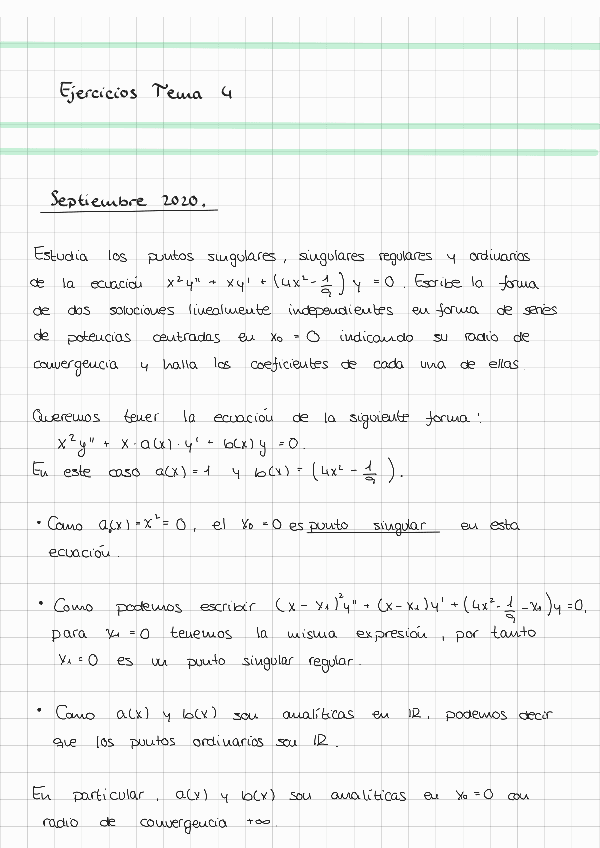 Ejercicios Tema 4
Septiembre 2020.
Estudia los puntos singulares, singulares regulares y ordinarios
de la ecuación x²y'' + xy' + (4x² - 1/9) y = 0. Escribe la forma
de dos soluciones linealmente independientes en forma de series
de potencias centradas en x₀ = 0 indicando su radio de
convergencia y halla los coeficientes de cada una de ellas.
Queremos tener la ecuación de la siguiente forma:
x²y'' + x·a(x)·y' + b(x)y = 0.
En este caso a(x) = 1 y b(x) = (4x² - 1/9).
• Como a₁(x) = x² = 0, el x₀ = 0 es punto singular en esta
ecuación.
• Como podemos escribir (x - x₁)²y'' + (x - x₁)y' + (4x² - 1/9 - x₁)y = 0,
para x₁ = 0 tenemos la misma expresión, por tanto
x₁ = 0 es un punto singular regular.
• Como a(x) y b(x) son analíticas en ℝ, podemos decir
que los puntos ordinarios son ℝ.
En particular, a(x) y b(x) son analíticas en x₀ = 0 con
radio de convergencia +∞.